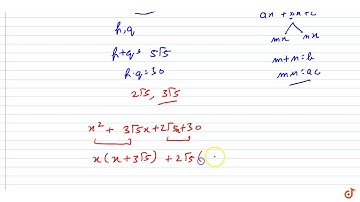 p, q
p + q = 5√5
p · q = 30
2√5, 3√5
x² + 3√5x + 2√5x + 30
x (x + 3√5) + 2√5 (
ax² + bx + c
mx nx
m + n = b
mn = ac